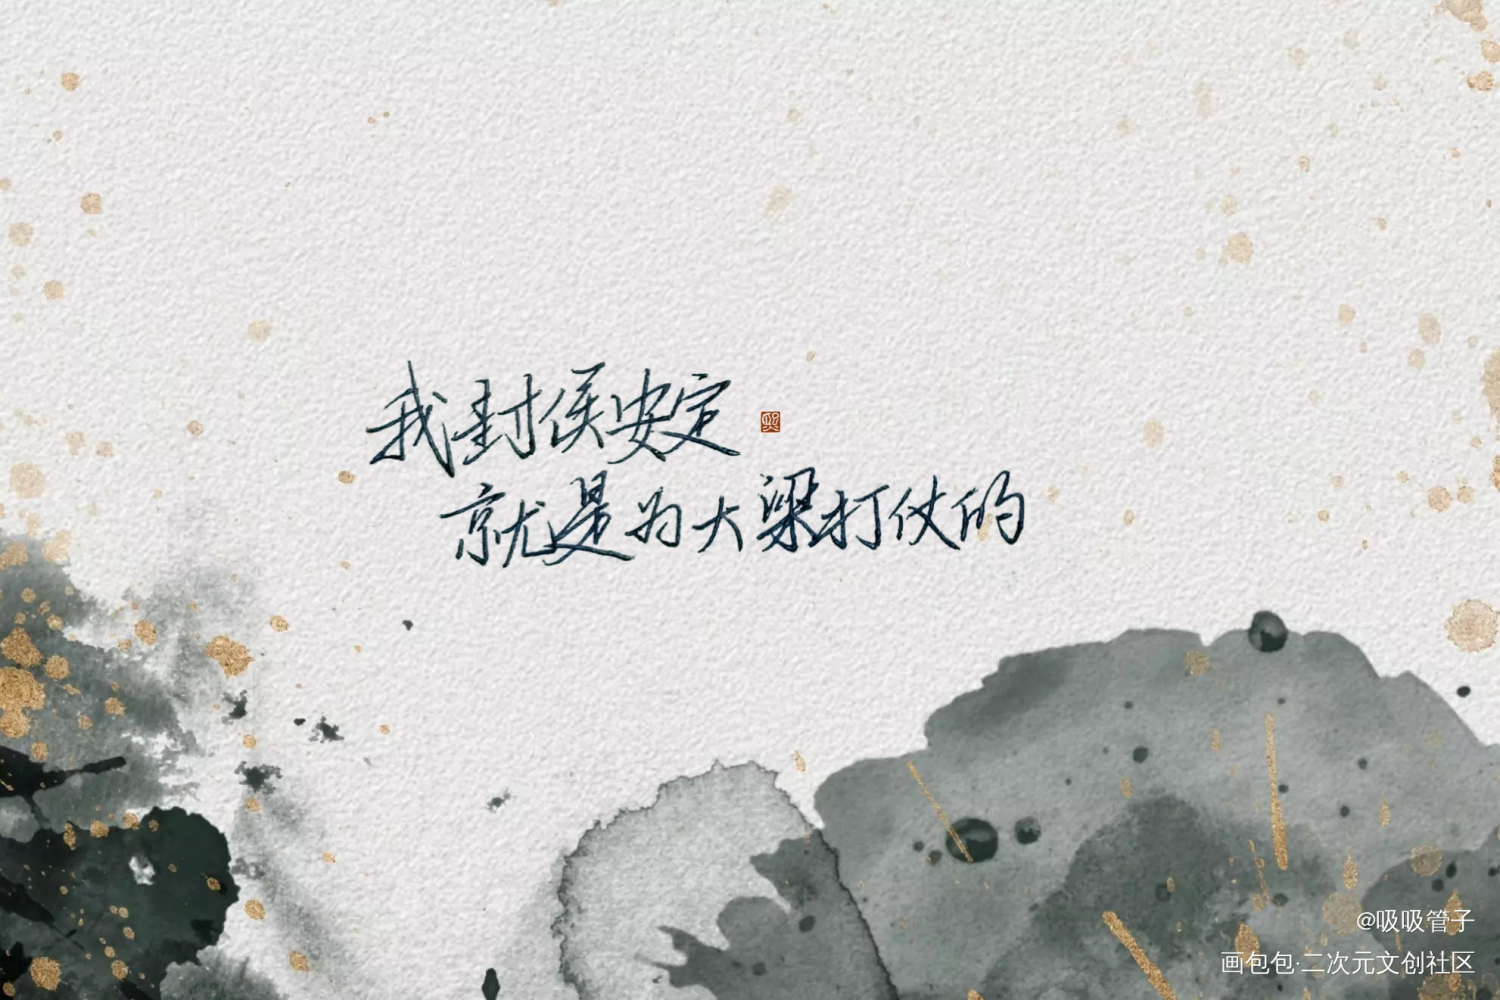 我封侯安定
就是为大梁打仗的
@吸吸管子
画包包·二次元文创社区